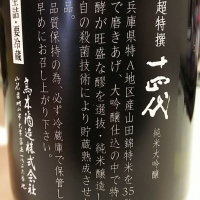 超特撰
十四代
純米大吟醸
兵庫県特A地区産山田錦特米を35
で磨きあげ、大吟醸仕込の中で特
酵が旺盛な醪を選抜・純米醸造し
自の殺菌技術により貯蔵熟成させ
品。
品質保持の為、必ず冷蔵庫で保管し
早めにお召し上がり下さい。
生詰・要冷蔵
高木酒造株式会社